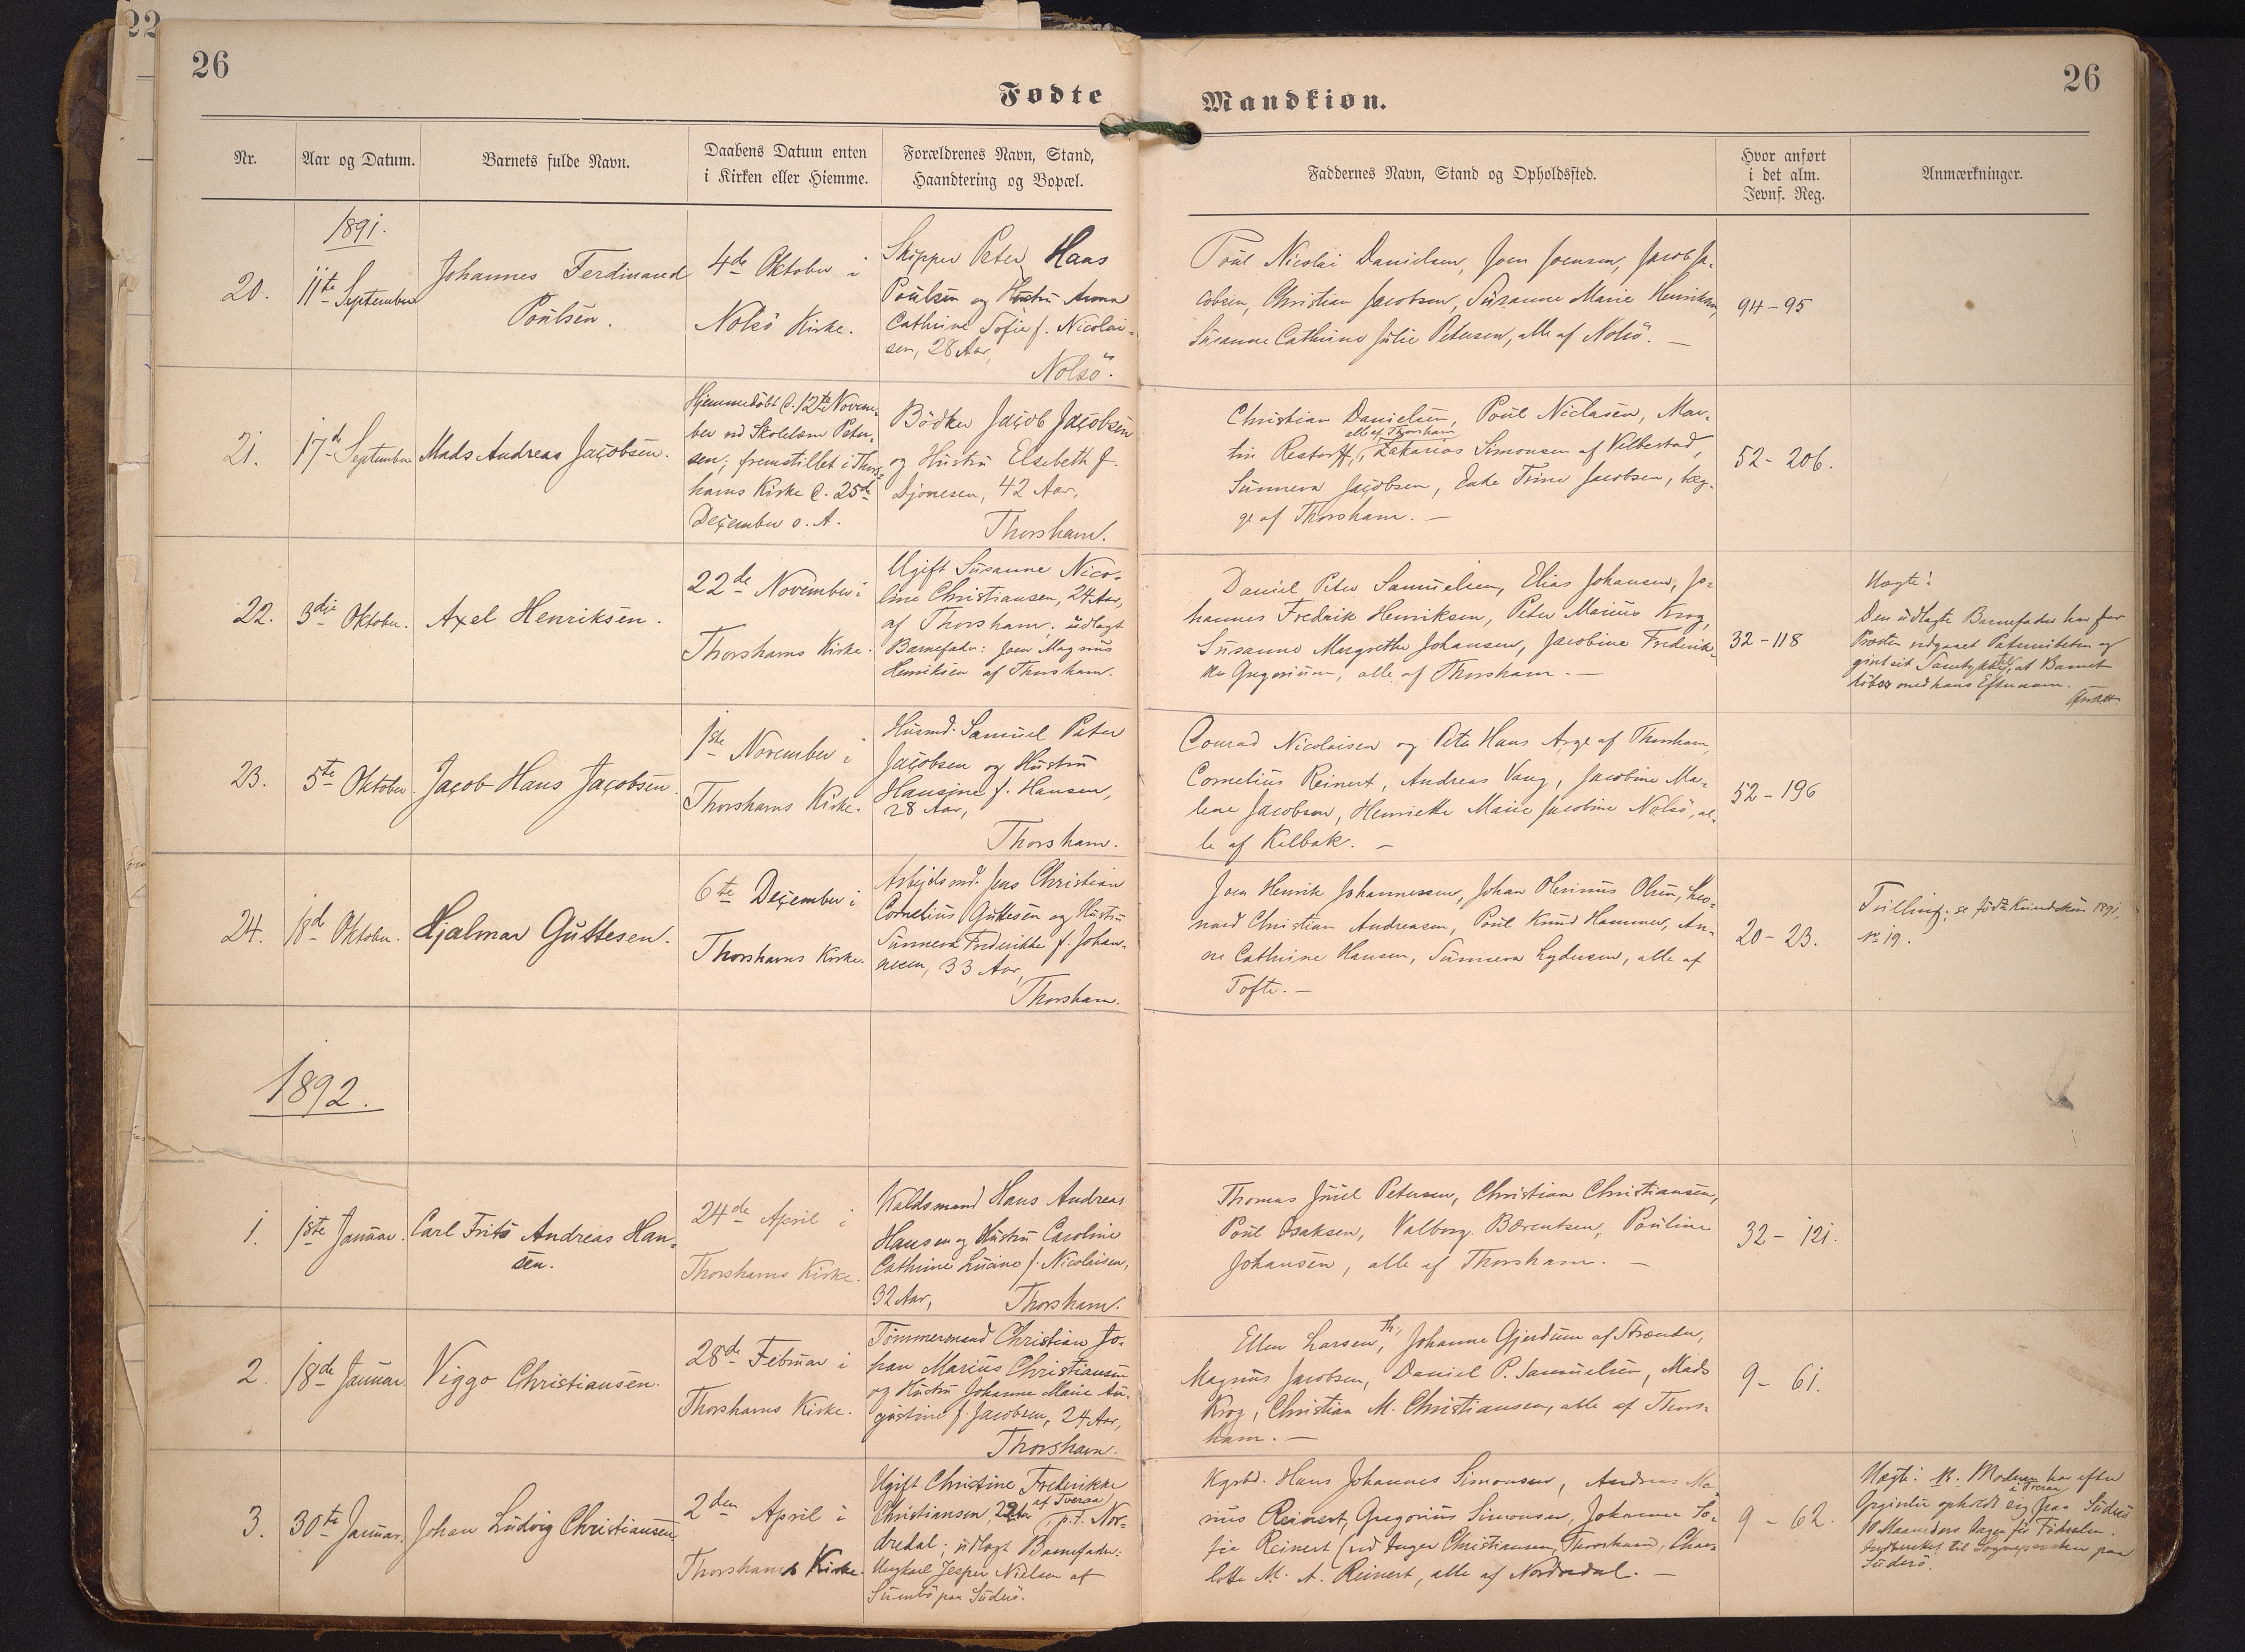 22
26
26
Fødte
Mandkiøn.
Nr.
Aar og Datum.
Barnets fulde Navn.
Daabens Datum enten
i Kirken eller Hiemme.
Forældrenes Navn, Stand,
Haandtering og Bopæl.
Faddernes Navn, Stand og Opholdssted.
Hvor anført
i det alm.
Jevnf. Reg.
Anmærkninger.
1891.
20.
11te September
Johannes Ferdinand
Poulsen.
4de Oktober i
Nolsö Kirke.
Skipper Peter Haas
Poulsen og Hustru Anna
Cathrine Sofie f. Nicolai-
sen, 28 Aar,
Nolsö.
Poul Nicolai Danielsen, Joen Joensen, Jacob Ja-
cobsen, Christian Jacobsen, Susanne Marie Henriksen,
Susanne Cathrine Julie Petersen, alle af Nolsö. —
94-95
21.
17de September
Mads Andreas Jacobsen.
Hjemmedöbt d. 12te Novem-
ber ved Skolelærer Peter-
sen; fremstillet i Thors-
havns Kirke d. 25de
December s. A.
Bödker Jacob Jacobsen
og Hustru Elsebeth f.
Djonesen, 42 Aar,
Thorshavn.
Christian Danielsen, Poul Niclasen, Mar-
alle af Thorshavn
tin Restorff, Zakarias Simonsen af Velbestad,
Sunneva Jacobsen, Trine Jacobsen, beg-
ge af Thorshavn. —
52-206.
22.
3die Oktober.
Axel Henriksen.
22de November i
Thorshavns Kirke.
Ugift Susanne Nico-
line Christiansen, 24 Aar,
af Thorshavn; udlagt
Barnefader: Joen Magnus
Henriksen af Thorshavn.
Daniel Peter Samuelsen, Elias Johansen, Jo-
hannes Fredrik Henriksen, Peter Marius Krog,
Susanne Margrethe Johansen, Jacobine Frederik-
ke Gregersen, alle af Thorshavn. —
32-118
Uægte!
Den udlagte Barnefader har for
Provsten vedgaaet Paterniteten og
givet sit Samtykke til, at Barnet
döbes med hans Efternavn.
23.
5te Oktober.
Jacob Hans Jacobsen.
1ste November i
Thorshavns Kirke.
Husmd. Samuel Peter
Jacobsen og Hustru
Hansine f. Hansen,
28 Aar,
Thorshavn.
Conrad Nicolaisen og Peter Hans Arge af Thorshavn,
Cornelius Reinert, Andreas Vang, Jacobine Ma-
lene Jacobsen, Henriette Marie Jacobine Nolsö, al-
le af Kalbak. —
52-196
24.
18de Oktober.
Hjalmar Guttesen.
6te December i
Thorshavns Kirke.
Arbejdsmd. Jens Christian
Cornelius Guttesen og Hustru
Sunneva Frederikke f. Johan-
nesen, 33 Aar,
Thorshavn.
Joen Henrik Johannessen, Johan Olerinus Olsen, Leo-
nard Christian Andreasen, Poul Knud Hammer, An-
ne Cathrine Hansen, Sunneva Lydersen, alle af
Tofte. —
20-23.
Tvilling; se födte Kvindekiön 1891,
No 19.
1892.
1.
1ste Januar.
Carl Frits Andreas Han-
sen.
24de April i
Thorshavns Kirke.
Kaldsmand Hans Andreas
Hansen og Hustru Caroline
Cathrine Lucine f. Nicolaisen,
32 Aar,
Thorshavn.
Thomas Juul Petersen, Christian Christiansen,
Poul Isaksen, Valborg Bærentsen, Pouline
Johansen, alle af Thorshavn. —
32-121.
2.
18de Januar
Viggo Christiansen.
28de Februar i
Thorshavns Kirke.
Tömmermand Christian Jo-
han Marius Christiansen
og Hustru Johanne Marie Au-
gustine f. Jacobsen, 24 Aar,
Thorshavn.
Ellen Larsen, Th., Johanne Gjerdum af Strænder,
Magnus Jacobsen, Daniel P. Samuelsen, Mads
Krog, Christian M. Christiansen, alle af Thors-
havn. —
9-61.
3.
30te Januar.
Johan Ludvig Christiansen
2den April i
Thorshavns Kirke.
Ugift Christine Frederikke
Christiansen, 22 Aar, af Tveraa, p.t. Nor-
dredal; udlagt Barnefader:
Ungkarl Jesper Nielsen af
Sumbö paa Suderö.
Kgsbd. Hans Johannes Simonsen, Andreas Ma-
rius Reinert, Gregorius Simonsen, Johanne So-
fie Reinert (ved Inger Christiansen, Thorshavn), Char-
lotte M. A. Reinert, alle af Nordredal. —
9-62.
Uægte! Moderen har efter
i Tveraa
opholdt sig paa Suderö
10 Maaneders Dagen för Födselen.
Indberettet til Sognepræsten paa
Suderö.